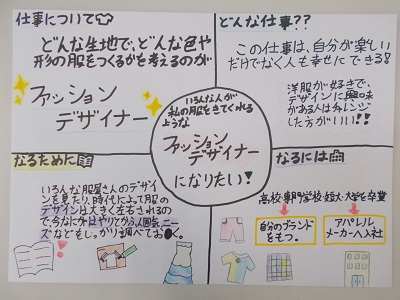 仕事について
どんな生地で、どんな色や
形の服をつくるかを考えるのが
ファッション
デザイナー
どんな仕事??
この仕事は、自分が楽しい
だけでなく人も幸せにできる!
洋服が好きで、
デザインに興味
がある人はチャレンジ
した方がいい!!
いろんな人が
私の服をきてくれる
ような
ファッション
デザイナー
になりたい!
なるために
いろんな服屋さんのデザイン
を見たり、時代によって服の
デザインは大きく左右されるの
で、今なにがはやりとか、人間気、ニー
ズなどもしっかり調べておく。
なるには
高校・専門学校・短大・大学を卒業
自分のブランド
をもつ。
アパレル
メーカーへ入社